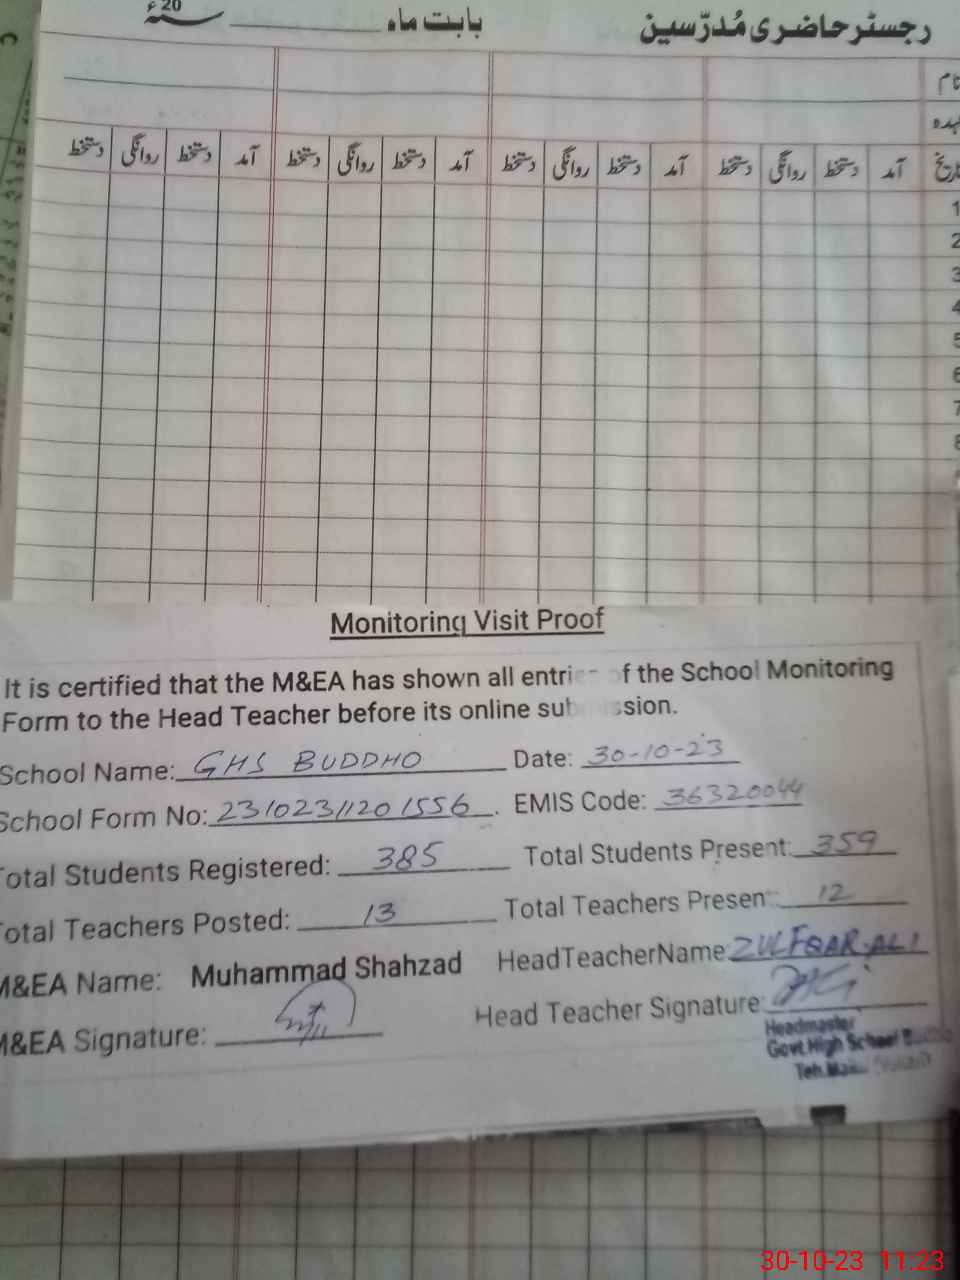 رجسٹر حاضری مُدرّسین بابت ماہ ــــــــ سنہ 20ء
نام
عہدہ
تاریخ آمد دستخط روانگی دستخط آمد دستخط روانگی دستخط آمد دستخط روانگی دستخط آمد دستخط روانگی دستخط
1
2
3
4
5
6
7
8
Monitoring Visit Proof
It is certified that the M&EA has shown all entries of the School Monitoring
Form to the Head Teacher before its online submission.
School Name: GHS BUDDHO Date: 30-10-23
School Form No: 23102311201556. EMIS Code: 36320044
Total Students Registered: 385 Total Students Present: 359
Total Teachers Posted: 13 Total Teachers Present: 12
M&EA Name: Muhammad Shahzad HeadTeacherName: ZULFQAR ALI
M&EA Signature: Head Teacher Signature:
Headmaster
Govt. High School
Teh.
30-10-23 11:23